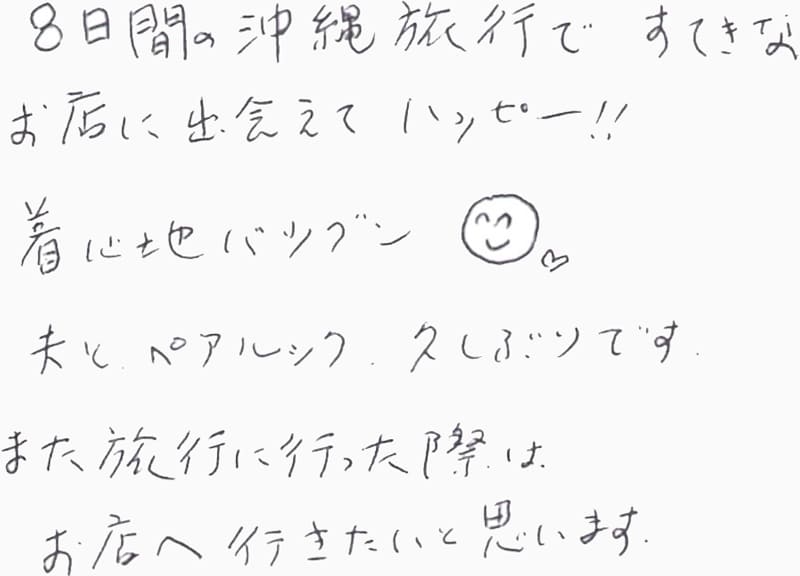 8日間の沖縄旅行ですてきな
お店に出会えてハッピー!!
着心地バツグン
夫とペアルック. 久しぶりです.
また旅行に行った際は
お店へ行きたいと思います.